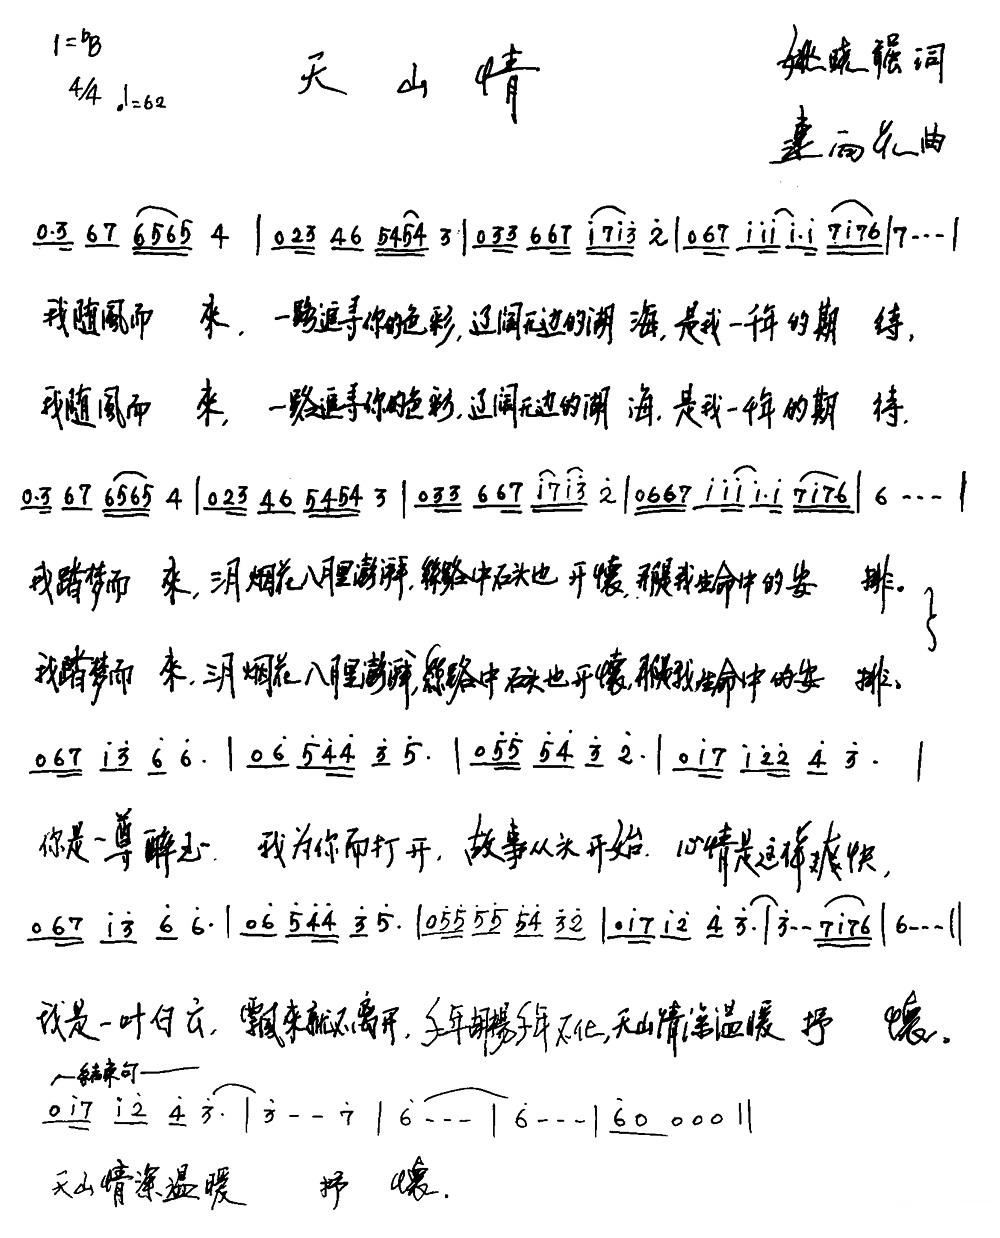 1=♭B
天 山 情
姚晓强词
4/4 ♩=62
雨花曲
0·3 67 6565 4 | 023 46 5454 3 | 033 667 i7i3 2 | 067 iii i·i 7i76 | 7--- |
我随風而 來，一路追寻你的色彩，辽阔无边的湖 海，是我一千年的期 待，
我随風而 來，一路追寻你的色彩，辽阔无边的湖 海，是我一千年的期 待，
0·3 67 6565 4 | 023 46 5454 3 | 033 667 i7i3 2 | 0667 iii i·i 7i76 | 6 --- |
我踏梦而 來，三月烟花八月里澎湃，絲路中石头也 开懷，那是我生命中的安 排。
我踏梦而 來，三月烟花八月里澎湃，絲路中石头也开懷，那是我生命中的安 排。
067 i3 6 6· | 06 544 3 5· | 055 54 3 2· | 0i7 i22 4 3· |
你是一尊醉玉 我为你而打开，故事从头开始 心情是这样爽快，
067 i3 6 6· | 06 544 3 5· | 055 55 54 32 | 0i7 i2 4 3· | 3-- 7i76 | 6--- ||
我是一叶白云，飄來就不离开，千年胡楊千年不化，天山情深温暖 抒 懷。
结束句
0i7 i2 4 3· | 3 - - 7 | 6 --- | 6 --- | 60 000 ||
天山情深温暖 抒 懷．